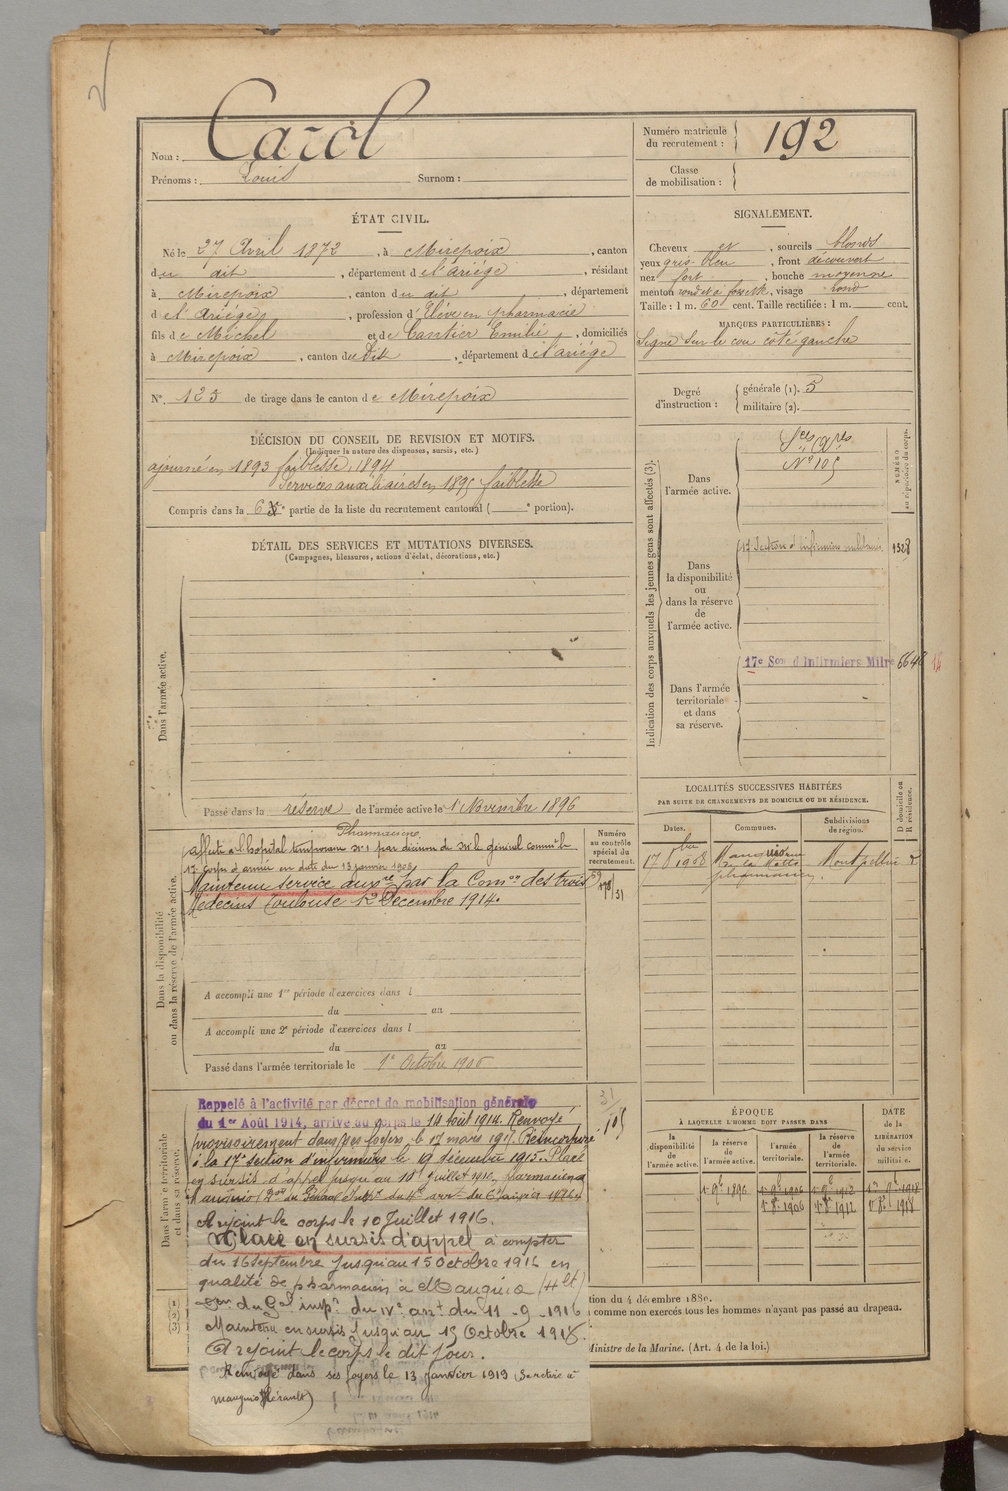 Nom : Carol
Prénoms : Louis Surnom :
Numéro matricule du recrutement : 192
Classe de mobilisation :
ÉTAT CIVIL.
Né le 27 Avril 1872, à Mirepoix, canton
du dit, département de l'ariége, résidant
à Mirepoix, canton du dit, département
de l'Ariége, profession d'Elève en pharmacie
fils de Michel et de Cantier Emilie, domiciliés
à Mirepoix, canton du dit, département de l'ariége
N°. 123 de tirage dans le canton de Mirepoix
SIGNALEMENT.
Cheveux et, sourcils blonds
yeux gris bleu, front découvert
nez fort, bouche moyenne
menton rond et à fossette, visage rond
Taille : 1 m. 60 cent. Taille rectifiée : 1 m. cent.
MARQUES PARTICULIÈRES :
Signe sur le cou côté gauche
Degré d'instruction : générale (1). 3
militaire (2).
DÉCISION DU CONSEIL DE REVISION ET MOTIFS.
(Indiquer la nature des dispenses, sursis, etc.)
ajourné en 1893 faiblesse, 1894
Services auxiliaires en 1895 faiblesse
Compris dans la 6e partie de la liste du recrutement cantonal ( e portion).
DÉTAIL DES SERVICES ET MUTATIONS DIVERSES.
(Campagnes, blessures, actions d'éclat, décorations, etc.)
Dans l'armée active.
Passé dans la réserve de l'armée active le 1er Novembre 1896
Indication des corps auxquels les jeunes gens sont affectés (3).
NUMÉRO au répertoire du corps.
Dans l'armée active.
N° 105
Dans la disponibilité ou dans la réserve de l'armée active.
17 Section d'infirmiers militaires 1328
Dans l'armée territoriale et dans sa réserve.
17e Son d'Infirmiers Milres 6648
LOCALITÉS SUCCESSIVES HABITÉES
PAR SUITE DE CHANGEMENTS DE DOMICILE OU DE RÉSIDENCE.
Dates. Communes. Subdivisions de région. D domicile ou R résidence.
17 8bre 1908 Mauguio pharmacien Montpellier R
Dans la disponibilité ou dans la réserve de l'armée active.
Numéro au contrôle spécial du recrutement.
Pharmacien
affecté à l'hôpital temporaire N° 1 par décision de Mr le général commdt le
17e Corps d'armée en date du 13 janvier 1903
Maintenu service auxre par la Comon des trois
Médecins Toulouse 12 Décembre 1914.
A accompli une 1re période d'exercices dans l
du au
A accompli une 2e période d'exercices dans l
du au
Passé dans l'armée territoriale le 1er Octobre 1906
Dans l'armée territoriale et dans sa réserve.
Rappelé à l'activité par décret de mobilisation générale
du 1er Août 1914, arrivé au corps le 14 Août 1914. Renvoyé
provisoirement dans ses foyers le 17 mars 1915. Réincorporé
à la 17e section d'infirmiers le 19 décembre 1915. Placé
en sursis d'appel jusqu'au 10 juillet 1916, pharmacien à
Mauguio
A rejoint le corps le 10 Juillet 1916.
Placé en sursis d'appel à compter
du 16 Septembre jusqu'au 15 octobre 1916 en
qualité de pharmacien à Mauguio (Hlt)
du Gal inspr du IVe arrt du 11-9-1916
Maintenu en sursis jusqu'au 15 Octobre 1916.
A rejoint le corps le dit jour.
Renvoyé dans ses foyers le 13 Janvier 1919 se retire à
Mauguio (Hérault)
105
ÉPOQUE
À LAQUELLE L'HOMME DOIT PASSER DANS
DATE de la LIBÉRATION du service militaire.
la disponibilité de l'armée active. la réserve de l'armée active. l'armée territoriale. la réserve de l'armée territoriale.
1er 9bre 1896 1er 9bre 1906 1er 9bre 1912 1er 9bre 1918
1er 8bre 1906 1er 8bre 1912 1er 8bre 1918
(1)
(2)
(3)
tion du 4 décembre 1889.
comme non exercés tous les hommes n'ayant pas passé au drapeau.
Ministre de la Marine. (Art. 4 de la loi.)